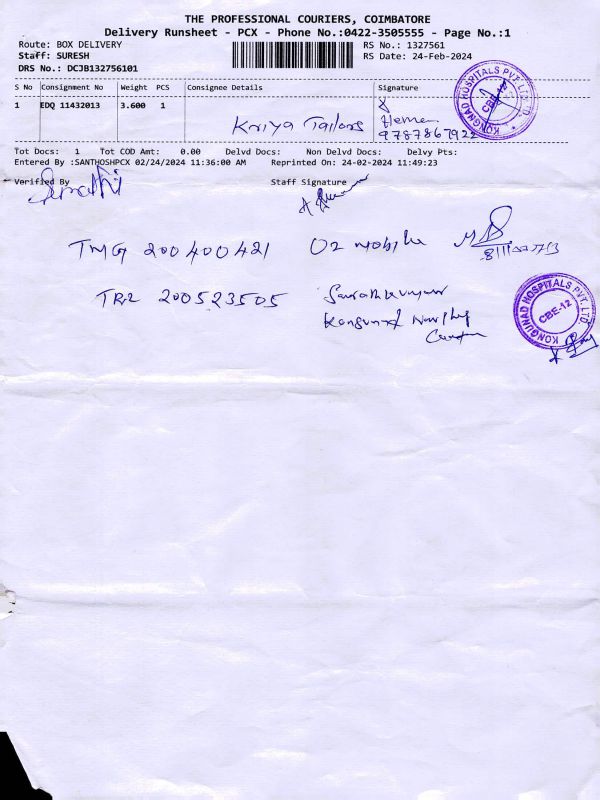 THE PROFESSIONAL COURIERS, COIMBATORE
Delivery Runsheet - PCX - Phone No.:0422-3505555 - Page No.:1
Route: BOX DELIVERY RS No.: 1327561
Staff: SURESH RS Date: 24-Feb-2024
DRS No.: DCJB132756101
S No Consignment No Weight PCS Consignee Details Signature
1 EDQ 11432013 3.600 1
Kriya Tailors
Heman
9787867922
KONGUNAD HOSPITALS PVT. LTD
CBE-12
Tot Docs: 1 Tot COD Amt: 0.00 Delvd Docs: Non Delvd Docs: Delvy Pts:
Entered By :SANTHOSHPCX 02/24/2024 11:36:00 AM Reprinted On: 24-02-2024 11:49:23
Verified By Staff Signature
TMG 200400421 O2 mobile
TRZ 200523505
KONGUNAD HOSPITALS PVT. LTD
CBE-12